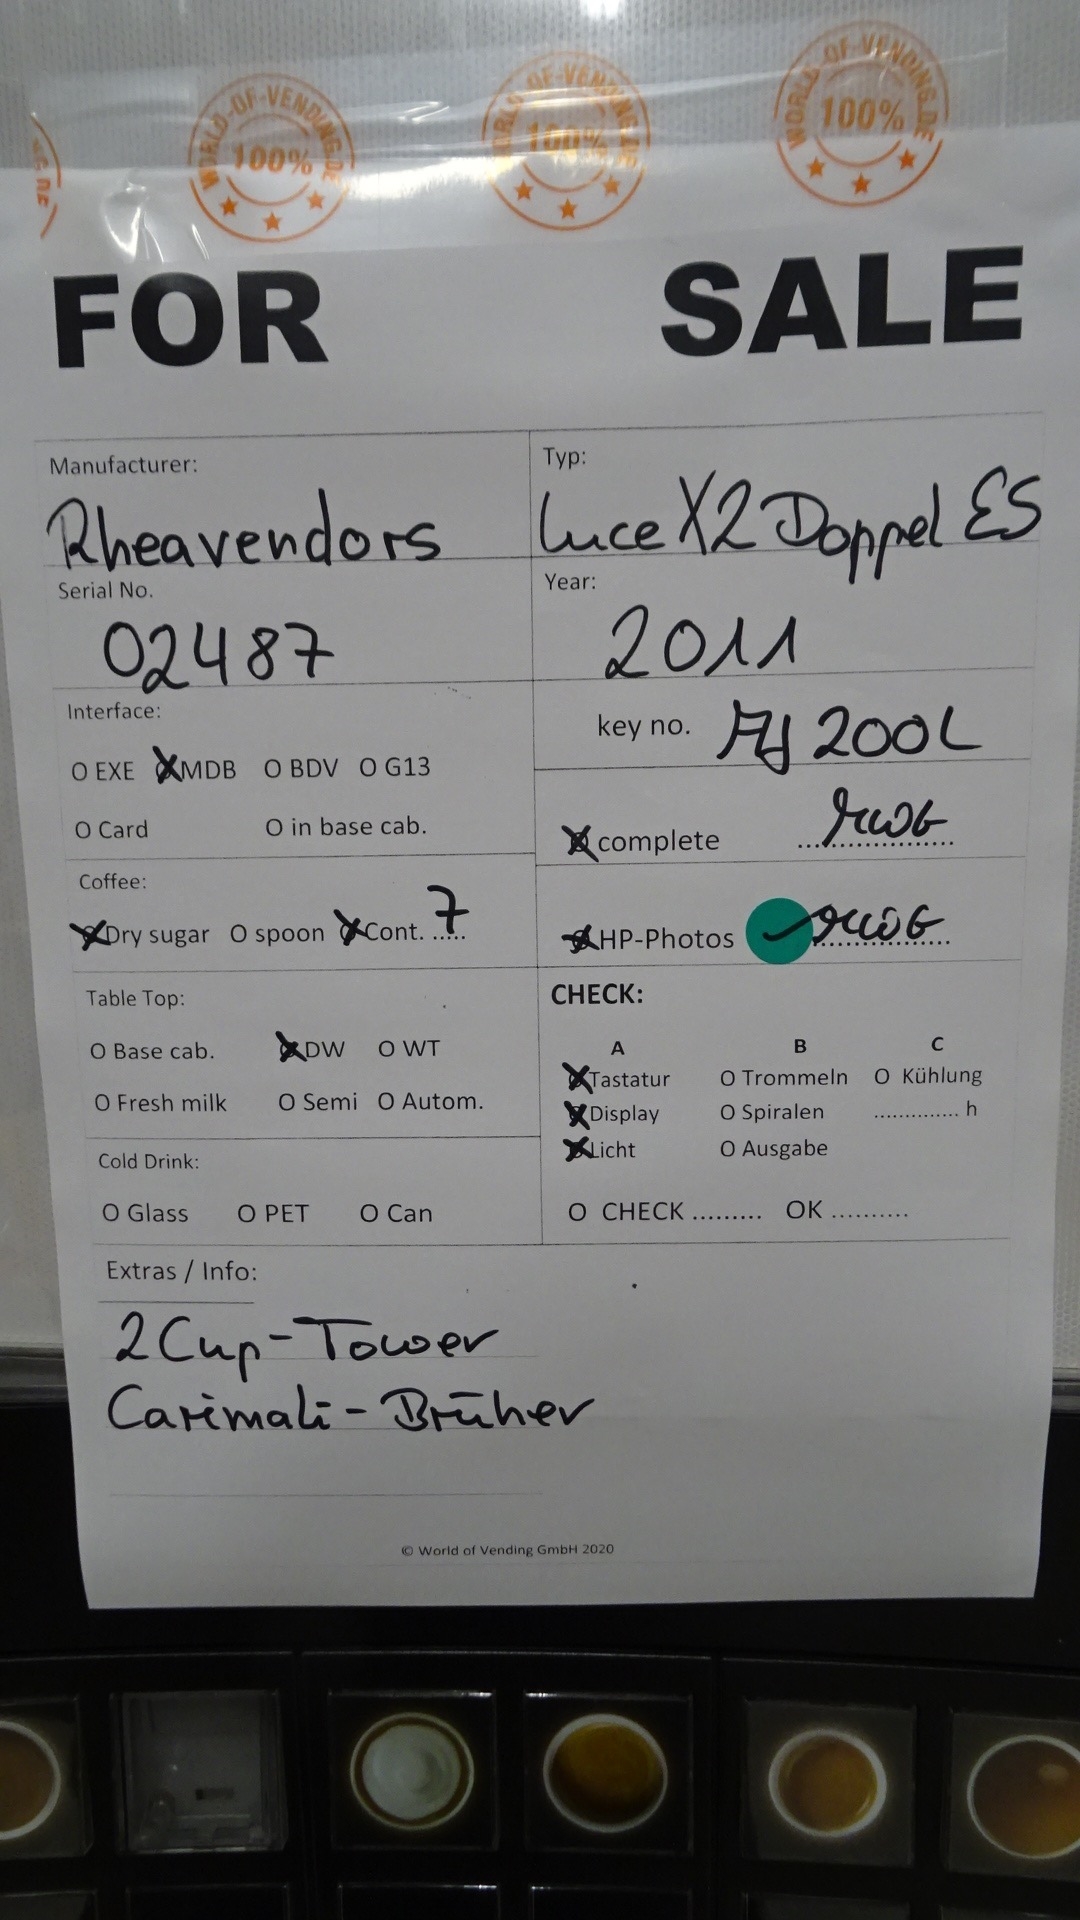 WORLD-OF-VENDING.DE
100%
WORLD-OF-VENDING.DE
100%
WORLD-OF-VENDING.DE
100%
FOR SALE
Manufacturer: Typ:
Rheavendors Luce X2 Doppel ES
Serial No. Year:
02487 2011
Interface: key no. 200L
O EXE XMDB O BDV O G13
O Card O in base cab. X complete
Coffee:
X Dry sugar O spoon X Cont. 7 X HP-Photos
Table Top: CHECK:
O Base cab. X DW O WT A B C
X Tastatur O Trommeln O Kühlung
O Fresh milk O Semi O Autom. X Display O Spiralen .............. h
Cold Drink: X Licht O Ausgabe
O Glass O PET O Can O CHECK ......... OK ..........
Extras / Info:
2 Cup-Tower
Carimali-Brüher
© World of Vending GmbH 2020